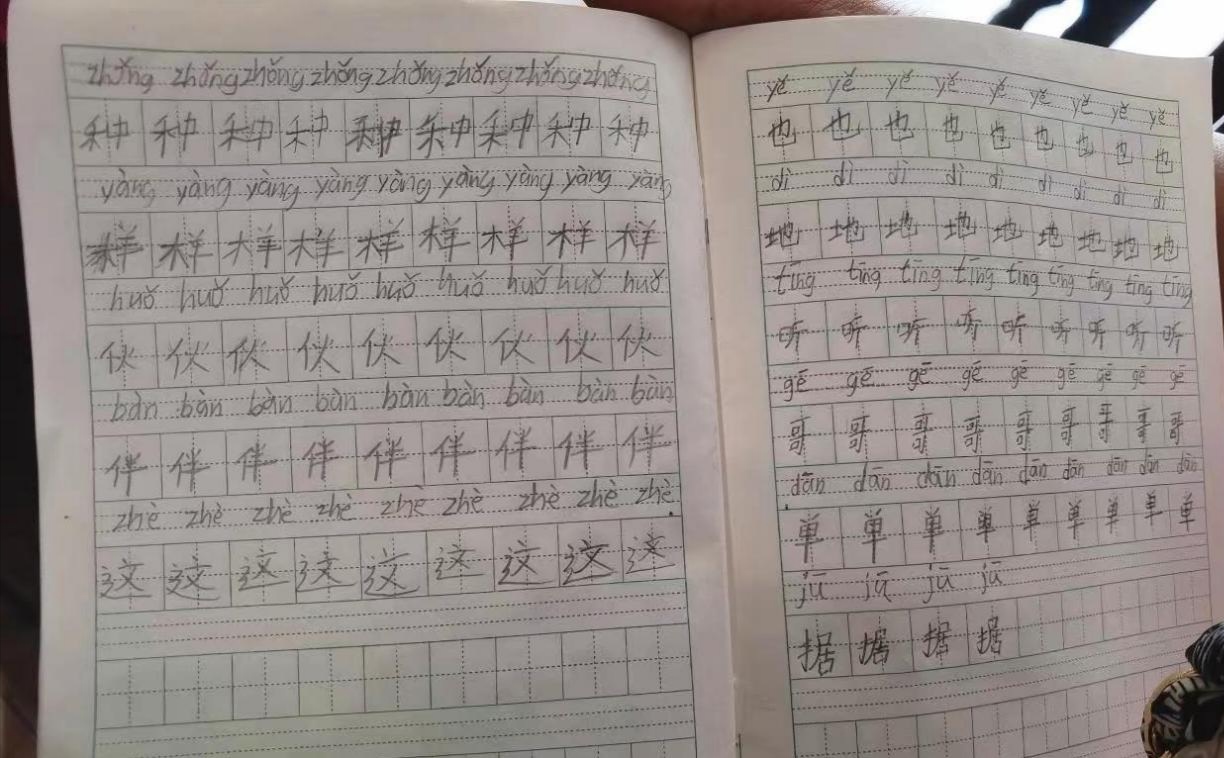 zhǒng zhǒng zhǒng zhǒng zhǒng zhǒng zhǒng zhǒng
种 种 种 种 种 种 种 种 种
yàng yàng yàng yàng yàng yàng yàng yàng yàng
样 样 样 样 样 样 样 样 样
huǒ huǒ huǒ huǒ huǒ huǒ huǒ huǒ huǒ
伙 伙 伙 伙 伙 伙 伙 伙 伙
bàn bàn bàn bàn bàn bàn bàn bàn bàn
伴 伴 伴 伴 伴 伴 伴 伴 伴
zhè zhè zhè zhè zhè zhè zhè zhè zhè
这 这 这 这 这 这 这 这 这
yě yě yě yě yě yě yě yě yě
也 也 也 也 也 也 也 也 也
dì dì dì dì dì dì dì dì dì
地 地 地 地 地 地 地 地 地
tīng tīng tīng tīng tīng tīng tīng tīng tīng
听 听 听 听 听 听 听 听 听
gē gē gē gē gē gē gē gē gē
哥 哥 哥 哥 哥 哥 哥 哥 哥
dān dān dān dān dān dān dān dān dān
单 单 单 单 单 单 单 单 单
jū jū jū jū
据 据 据 据